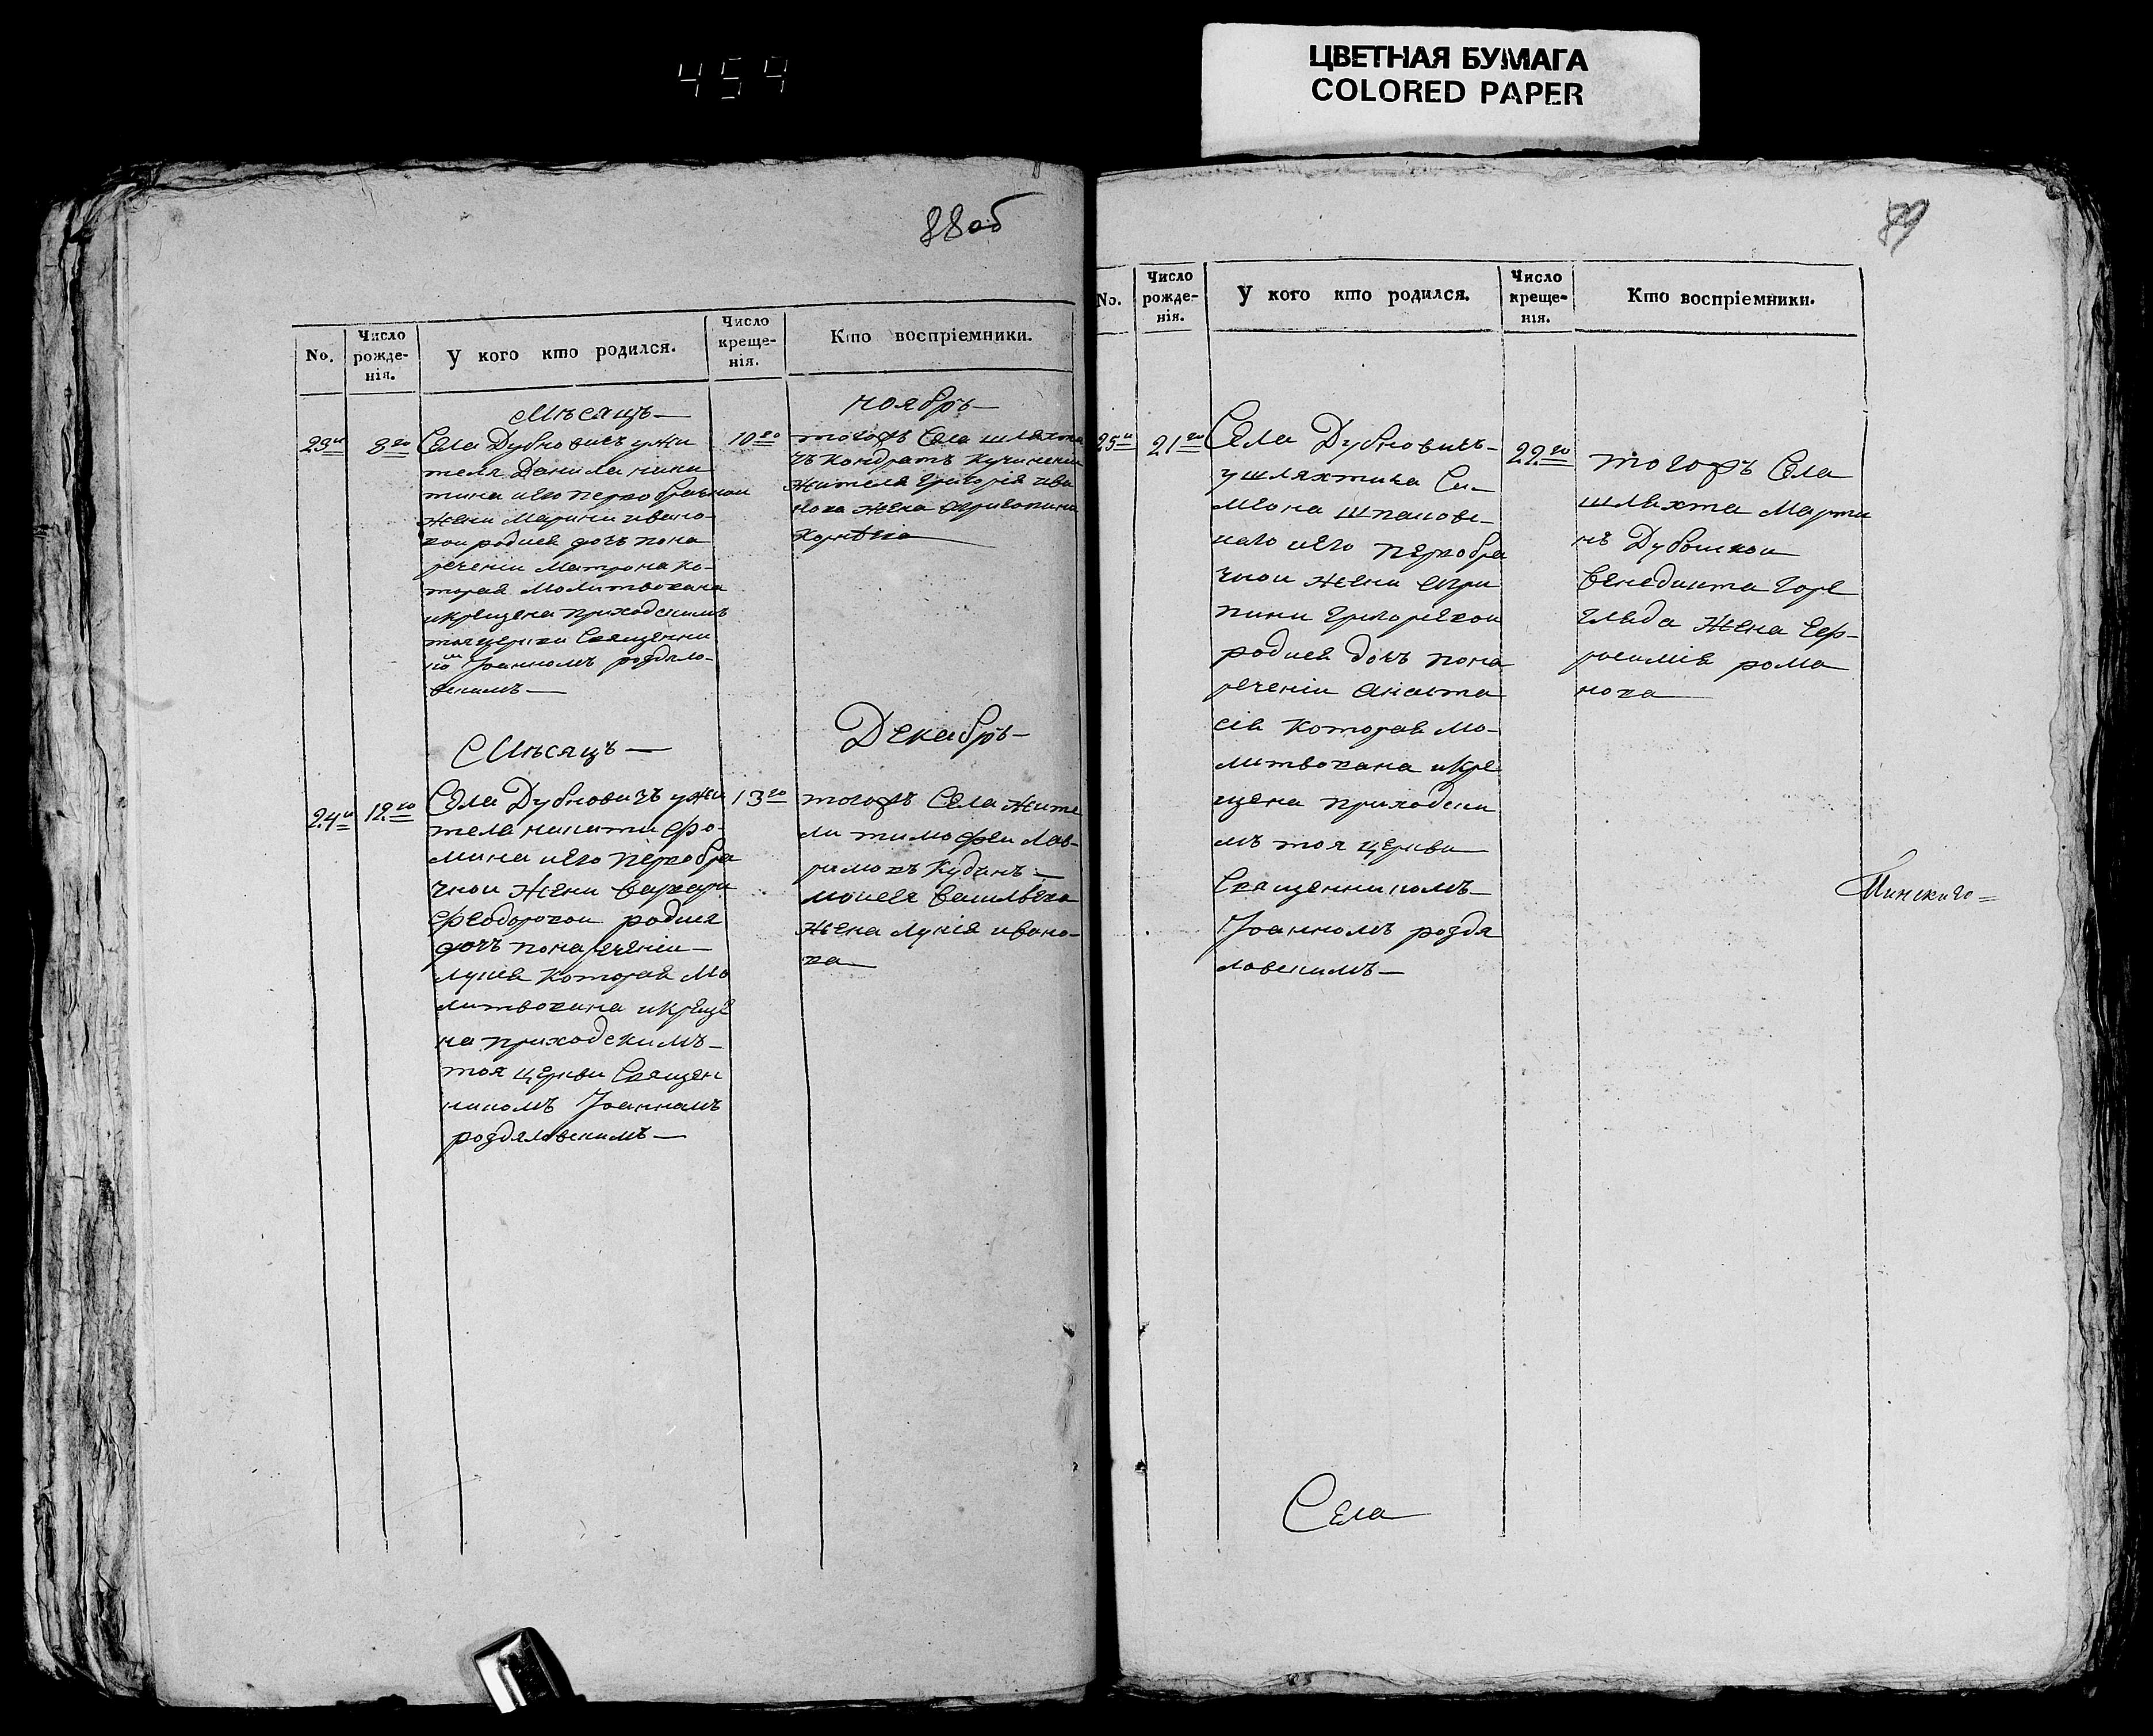 459
ЦВЕТНАЯ БУМАГА
COLORED PAPER
88об
No.
Число рожде-нія.
У кого кто родился.
Число креще-нія.
Кто воспріемники.
Мѣсяцъ
ноябрь
23й
8го
10го
Села Дубновичъ ужи
теля Данила ники
тина иего первобрачнои
жени Марини ивано-
вои родися дочъ пона
реченіи Матрона ко-
торая Молитвована
икрещена приходскимъ
тоя церкви Священни
Іоанномъ роздяло-
вскимъ
тогожъ Села шляхти
чъ Кондратъ
жителя Григорія ива
нова жена
Мѣсяцъ
Декабрь
24й
12го
13го
Села Дубновичъ ужи
теля никити фо-
мина иего первобра
чнои жени Варвари
феодоровои родися
дочъ понареченіи
лукія Которая Мо
литвована икреще
на приходскимъ
тоя церкви Священ
никомъ Іоанномъ
роздяловскимъ
тогожъ Села жите
ли тимофеи Лав-
моисея Васильева
жена лукія ивано-
ва
89
No.
Число рожде-нія.
У кого кто родился.
Число креще-нія.
Кто воспріемники.
25й
21го
22го
Села Дубновичъ
ушляхтича Си-
меона шпаков-
каго иего первобра
чнои жени Агри
пини Григориевои
родися дочъ пона
речении Анаста
сія Которая Мо-
литвована икре
щена приходски
мъ тоя церкви
Священникомъ
Іоанномъ роздя
ловскимъ
тогожъ Села
шляхта Марти
нъ
Венедикта Горе
гляда жена
рома
нова
Минскаго
Села